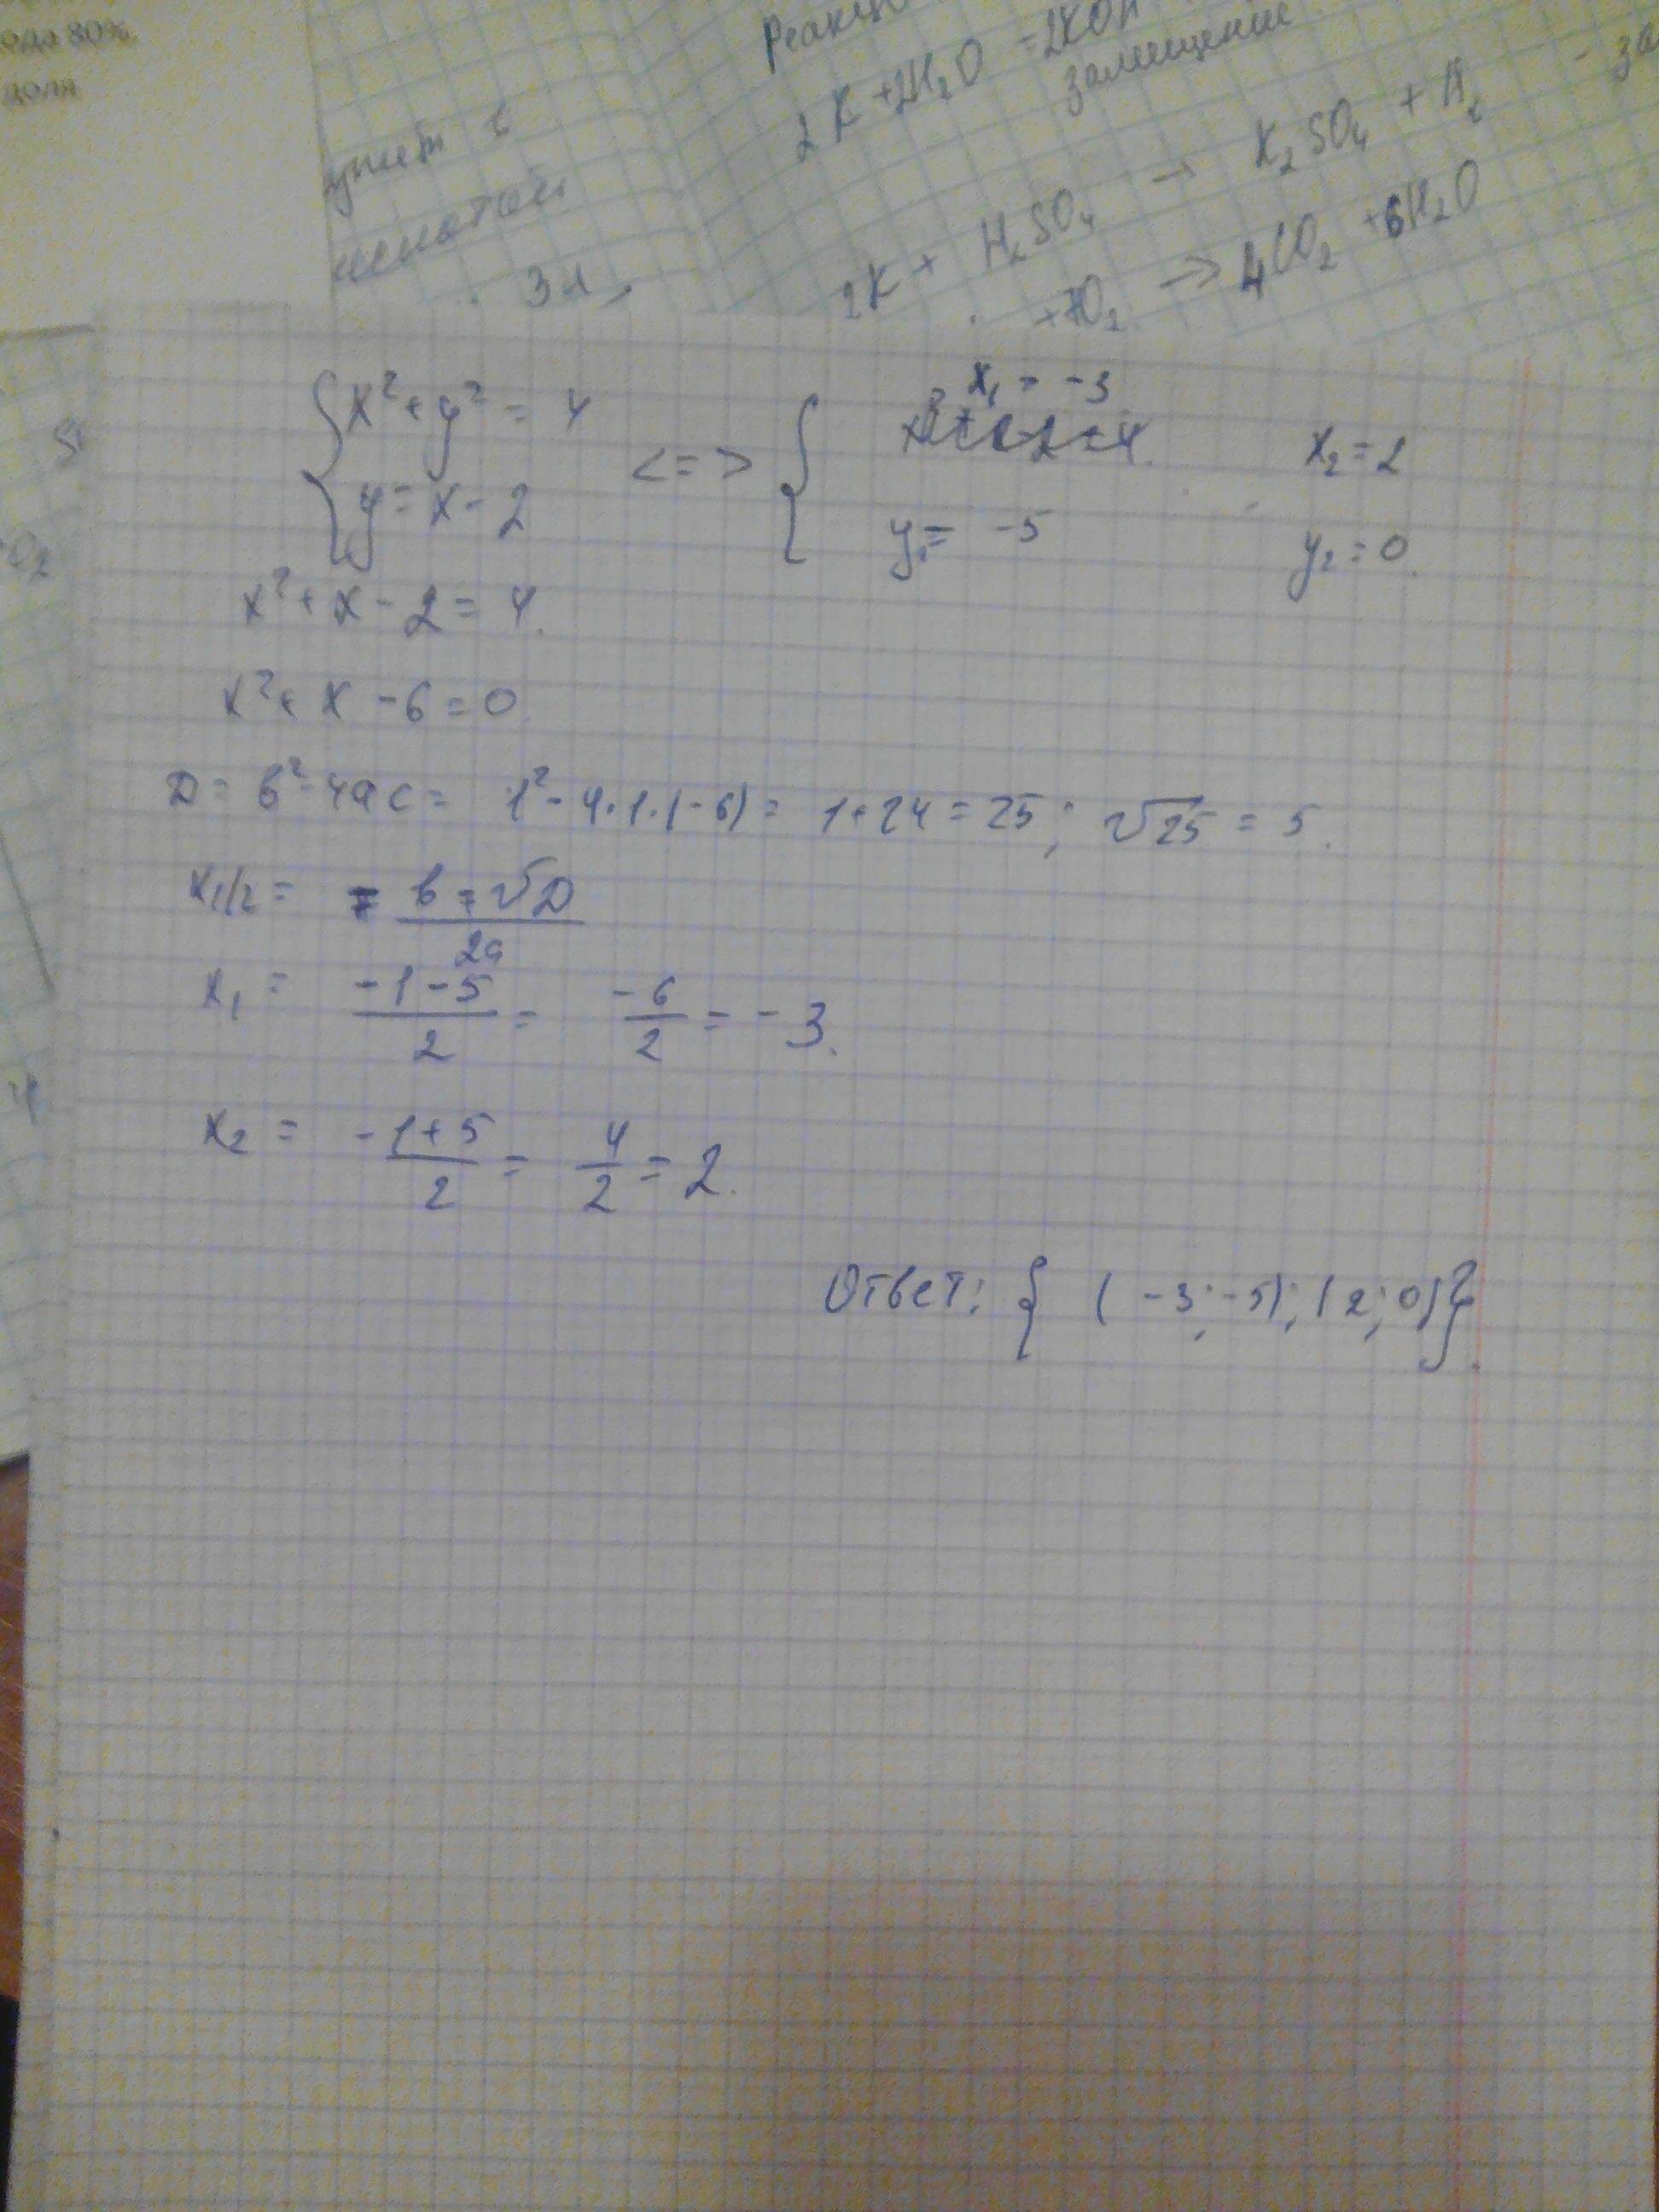 ода 80%.
доля
Реакц
2K + 2H₂O = 2KOH
замещение
2K + H₂SO₄ → K₂SO₄ + H₂ - за
+7O₂ → 4CO₂ + 6H₂O
3л,
{ x² + y² = 4
y = x - 2
<=> {
x₁ = -3
y₁ = -5
x₂ = 2
y₂ = 0.
x² + x - 2 = 4.
x² + x - 6 = 0
D = b² - 4ac = 1² - 4·1·(-6) = 1 + 24 = 25; √25 = 5.
x₁/₂ =
2a
x₁ = (-1-5)/2 = -6/2 = -3.
x₂ = (-1+5)/2 = 4/2 = 2.
Ответ: { (-3; -5); (2; 0)}.